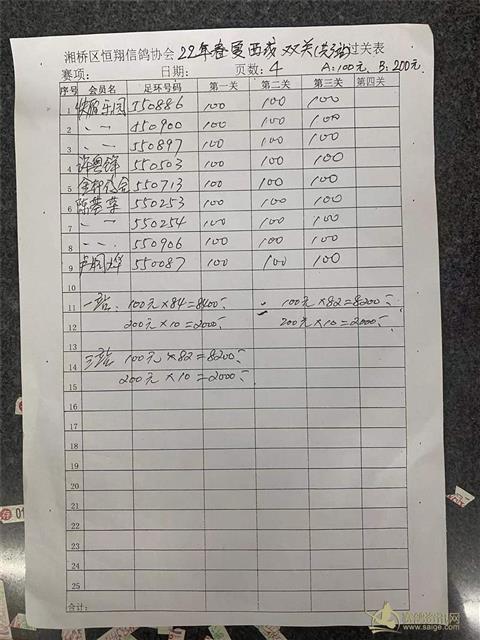 湘桥区恒翔信鸽协会 22年春夏西成双关(共3站)过关表
赛项: 日期: 页数: 4 A:100元、B:200元
序号 会员名 足环号码 第一关 第二关 第三关 第四关
1 快鸽乐园 550886 100 100 100
2 〃 550900 100 100 100
3 〃 550897 100 100 100
4 许粤锋 550503 100 100 100
5 550713 100 100 100
6 550253 100 100 100
7 〃 550254 100 100 100
8 〃 550906 100 100 100
9 550087 100 100 100
10
11 一站: 100元×84=8400 100元×82=8200
12 200元×10=2000 200元×10=2000
13
14 三站 100元×82=8200
15 200元×10=2000
16
17
18
19
20
21
22
23
24
25
合计:
01
www.saige.com